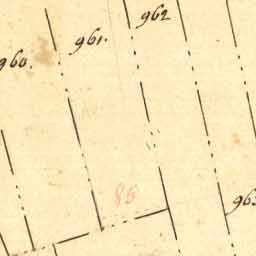 962
961.
960.
85